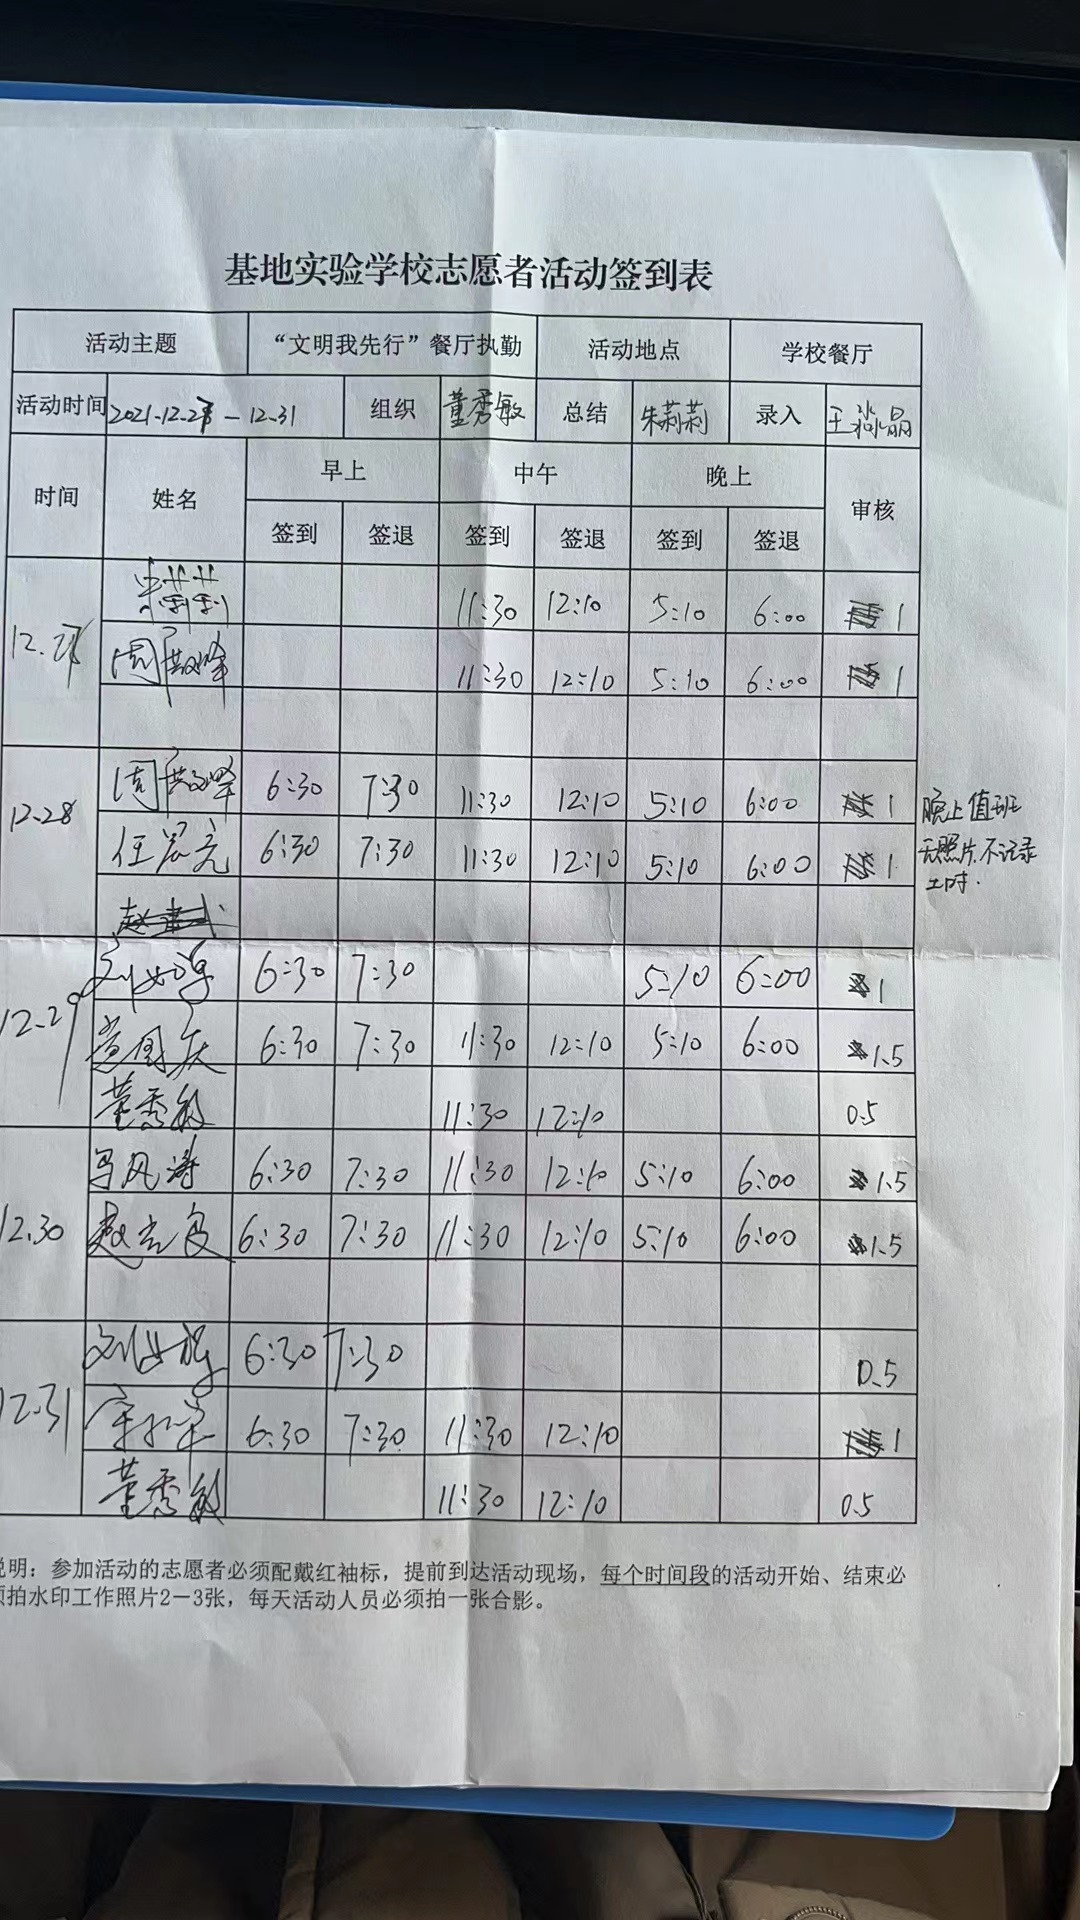 基地实验学校志愿者活动签到表
活动主题 “文明我先行”餐厅执勤 活动地点 学校餐厅
活动时间 2021.12.27-12.31 组织 董秀敏 总结 朱莉莉 录入 王淑晶
时间 姓名 早上 中午 晚上 审核
签到 签退 签到 签退 签到 签退
12.27 朱莉莉 11:30 12:10 5:10 6:00 1
周 峰 11:30 12:10 5:10 6:00 1
12.28 周 峰 6:30 7:30 11:30 12:10 5:10 6:00 1
任 亮 6:30 7:30 11:30 12:10 5:10 6:00 1
晚上值班
无照片,不记录
工时.
12.29 刘 6:30 7:30 5:10 6:00 1
国庆 6:30 7:30 11:30 12:10 5:10 6:00 1.5
董秀敏 11:30 12:10 0.5
12.30 马风涛 6:30 7:30 11:30 12:10 5:10 6:00 1.5
赵 6:30 7:30 11:30 12:10 5:10 6:00 1.5
12.31 刘 6:30 7:30 0.5
6:30 7:30 11:30 12:10 1
董秀敏 11:30 12:10 0.5
说明：参加活动的志愿者必须配戴红袖标，提前到达活动现场，每个时间段的活动开始、结束必
须拍水印工作照片2-3张，每天活动人员必须拍一张合影。